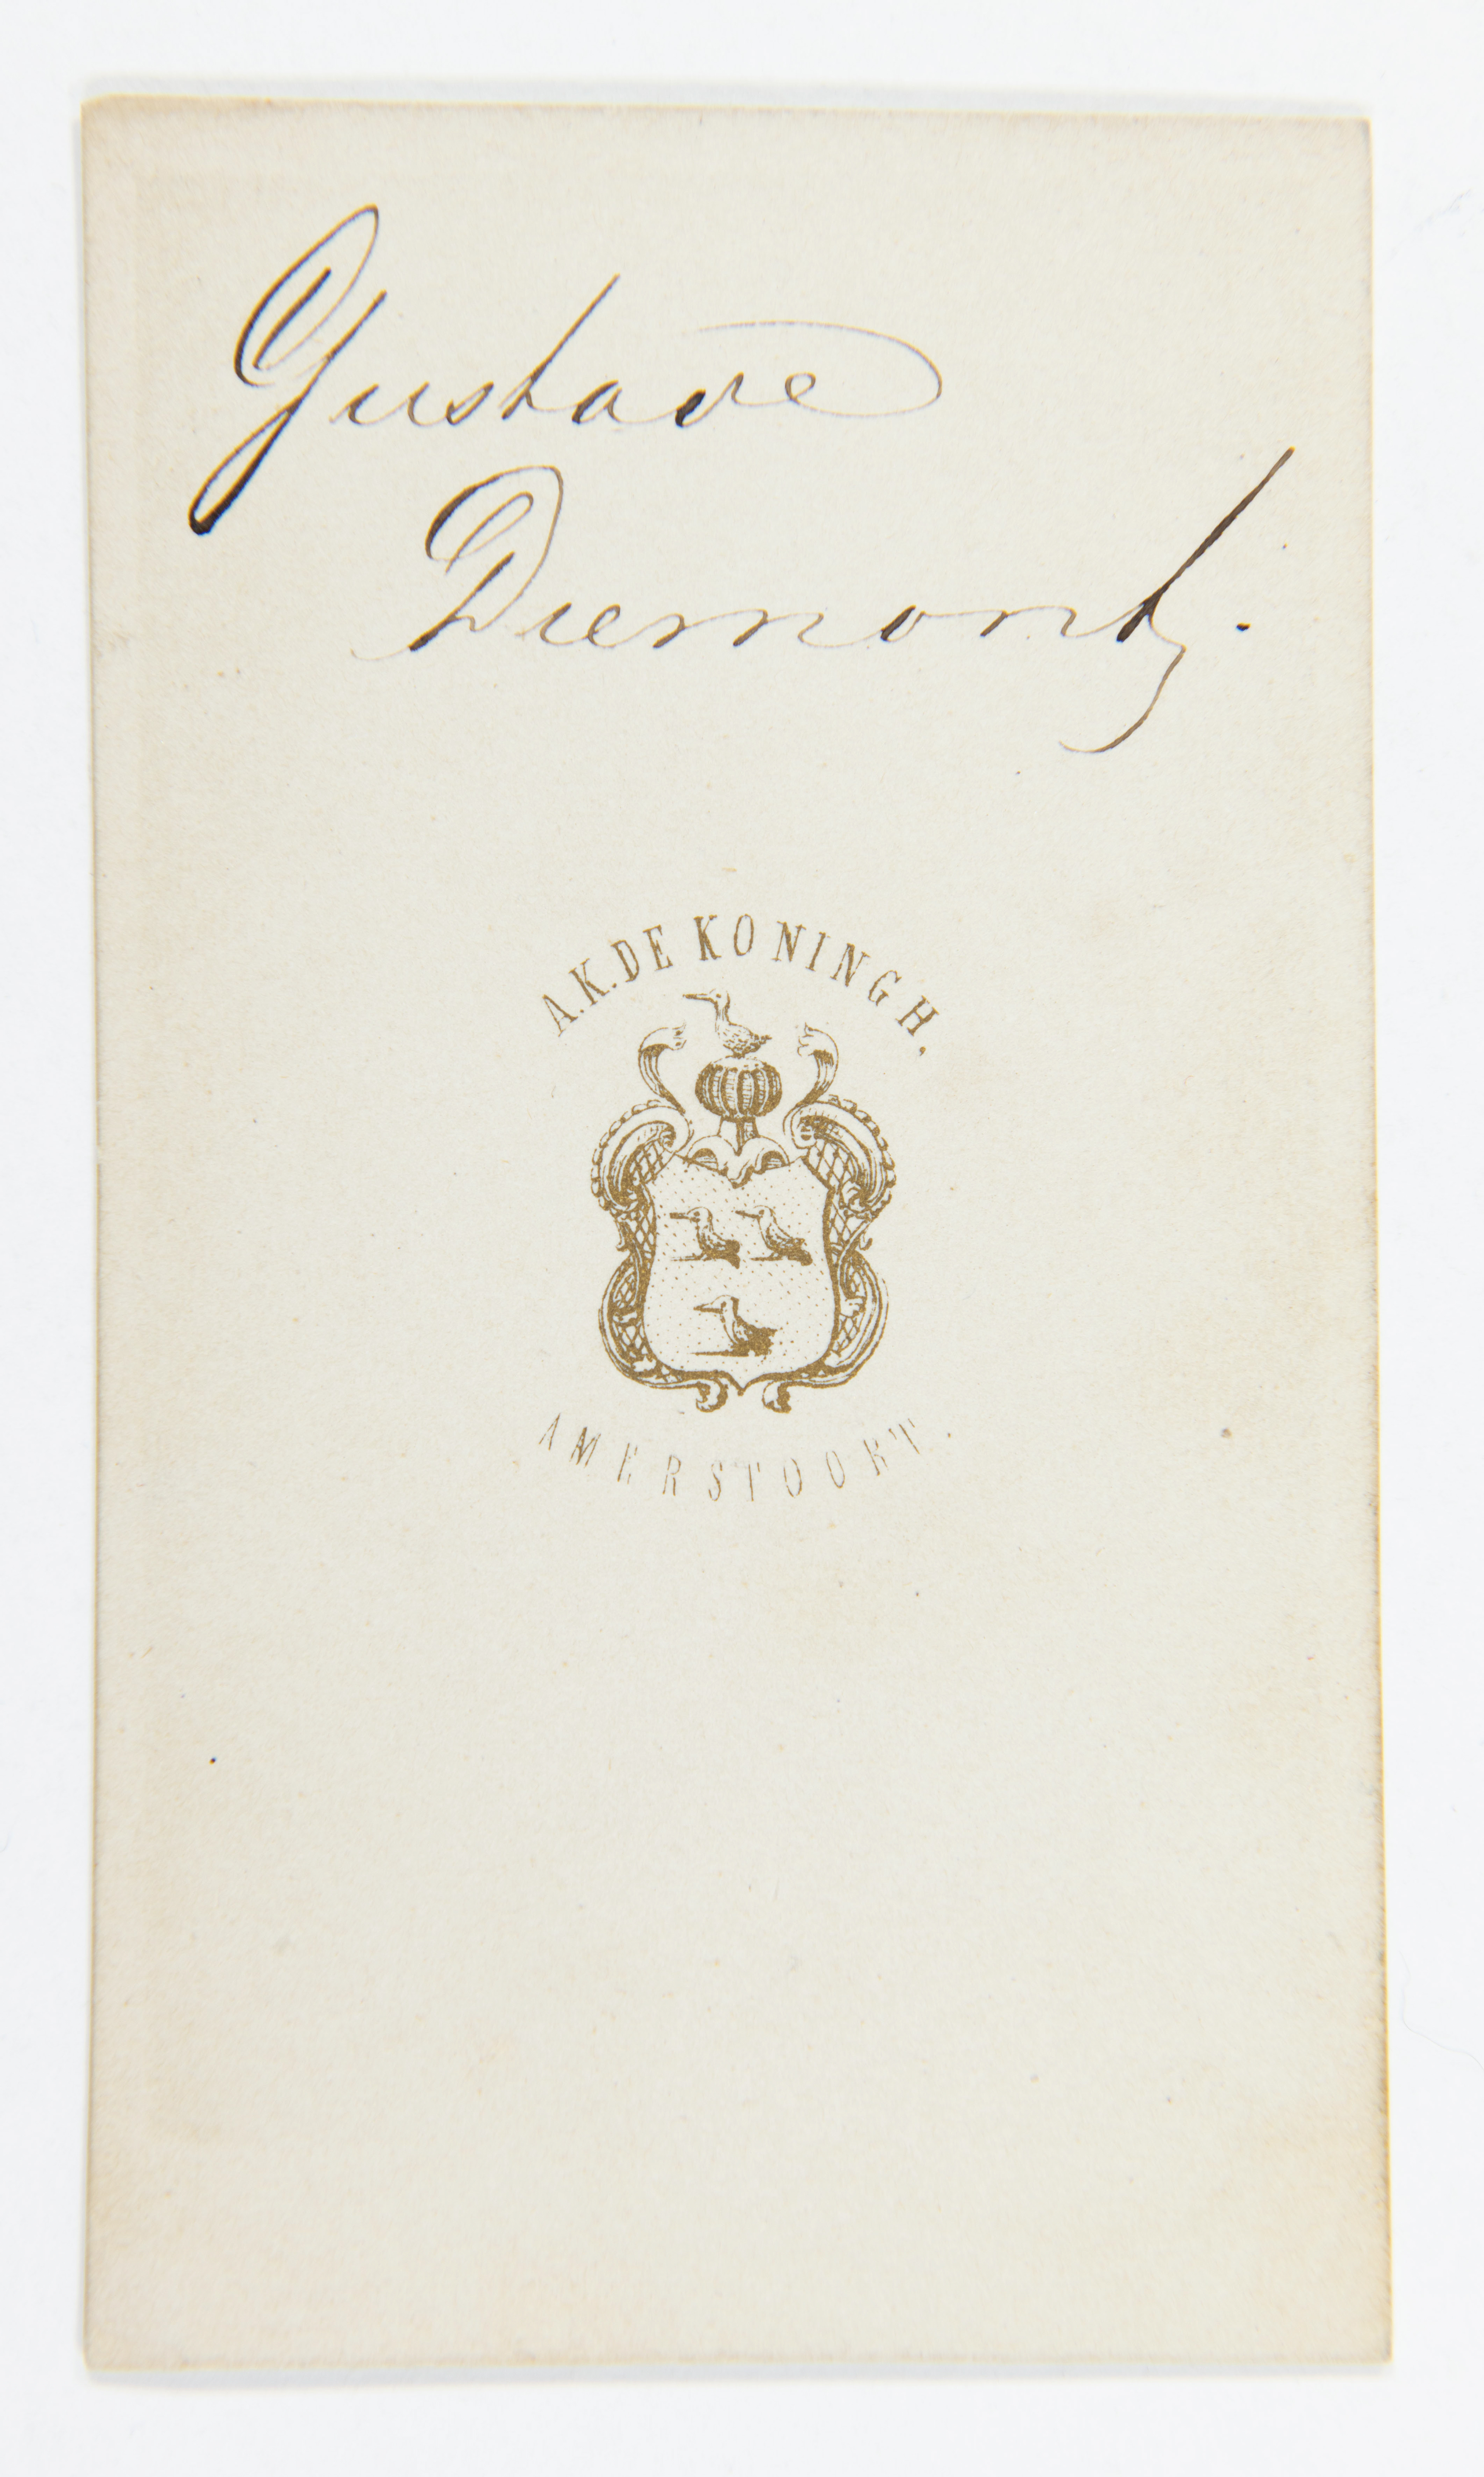 Gustave
Diemont.
A.K. DE KONINGH.
AMERSFOORT.